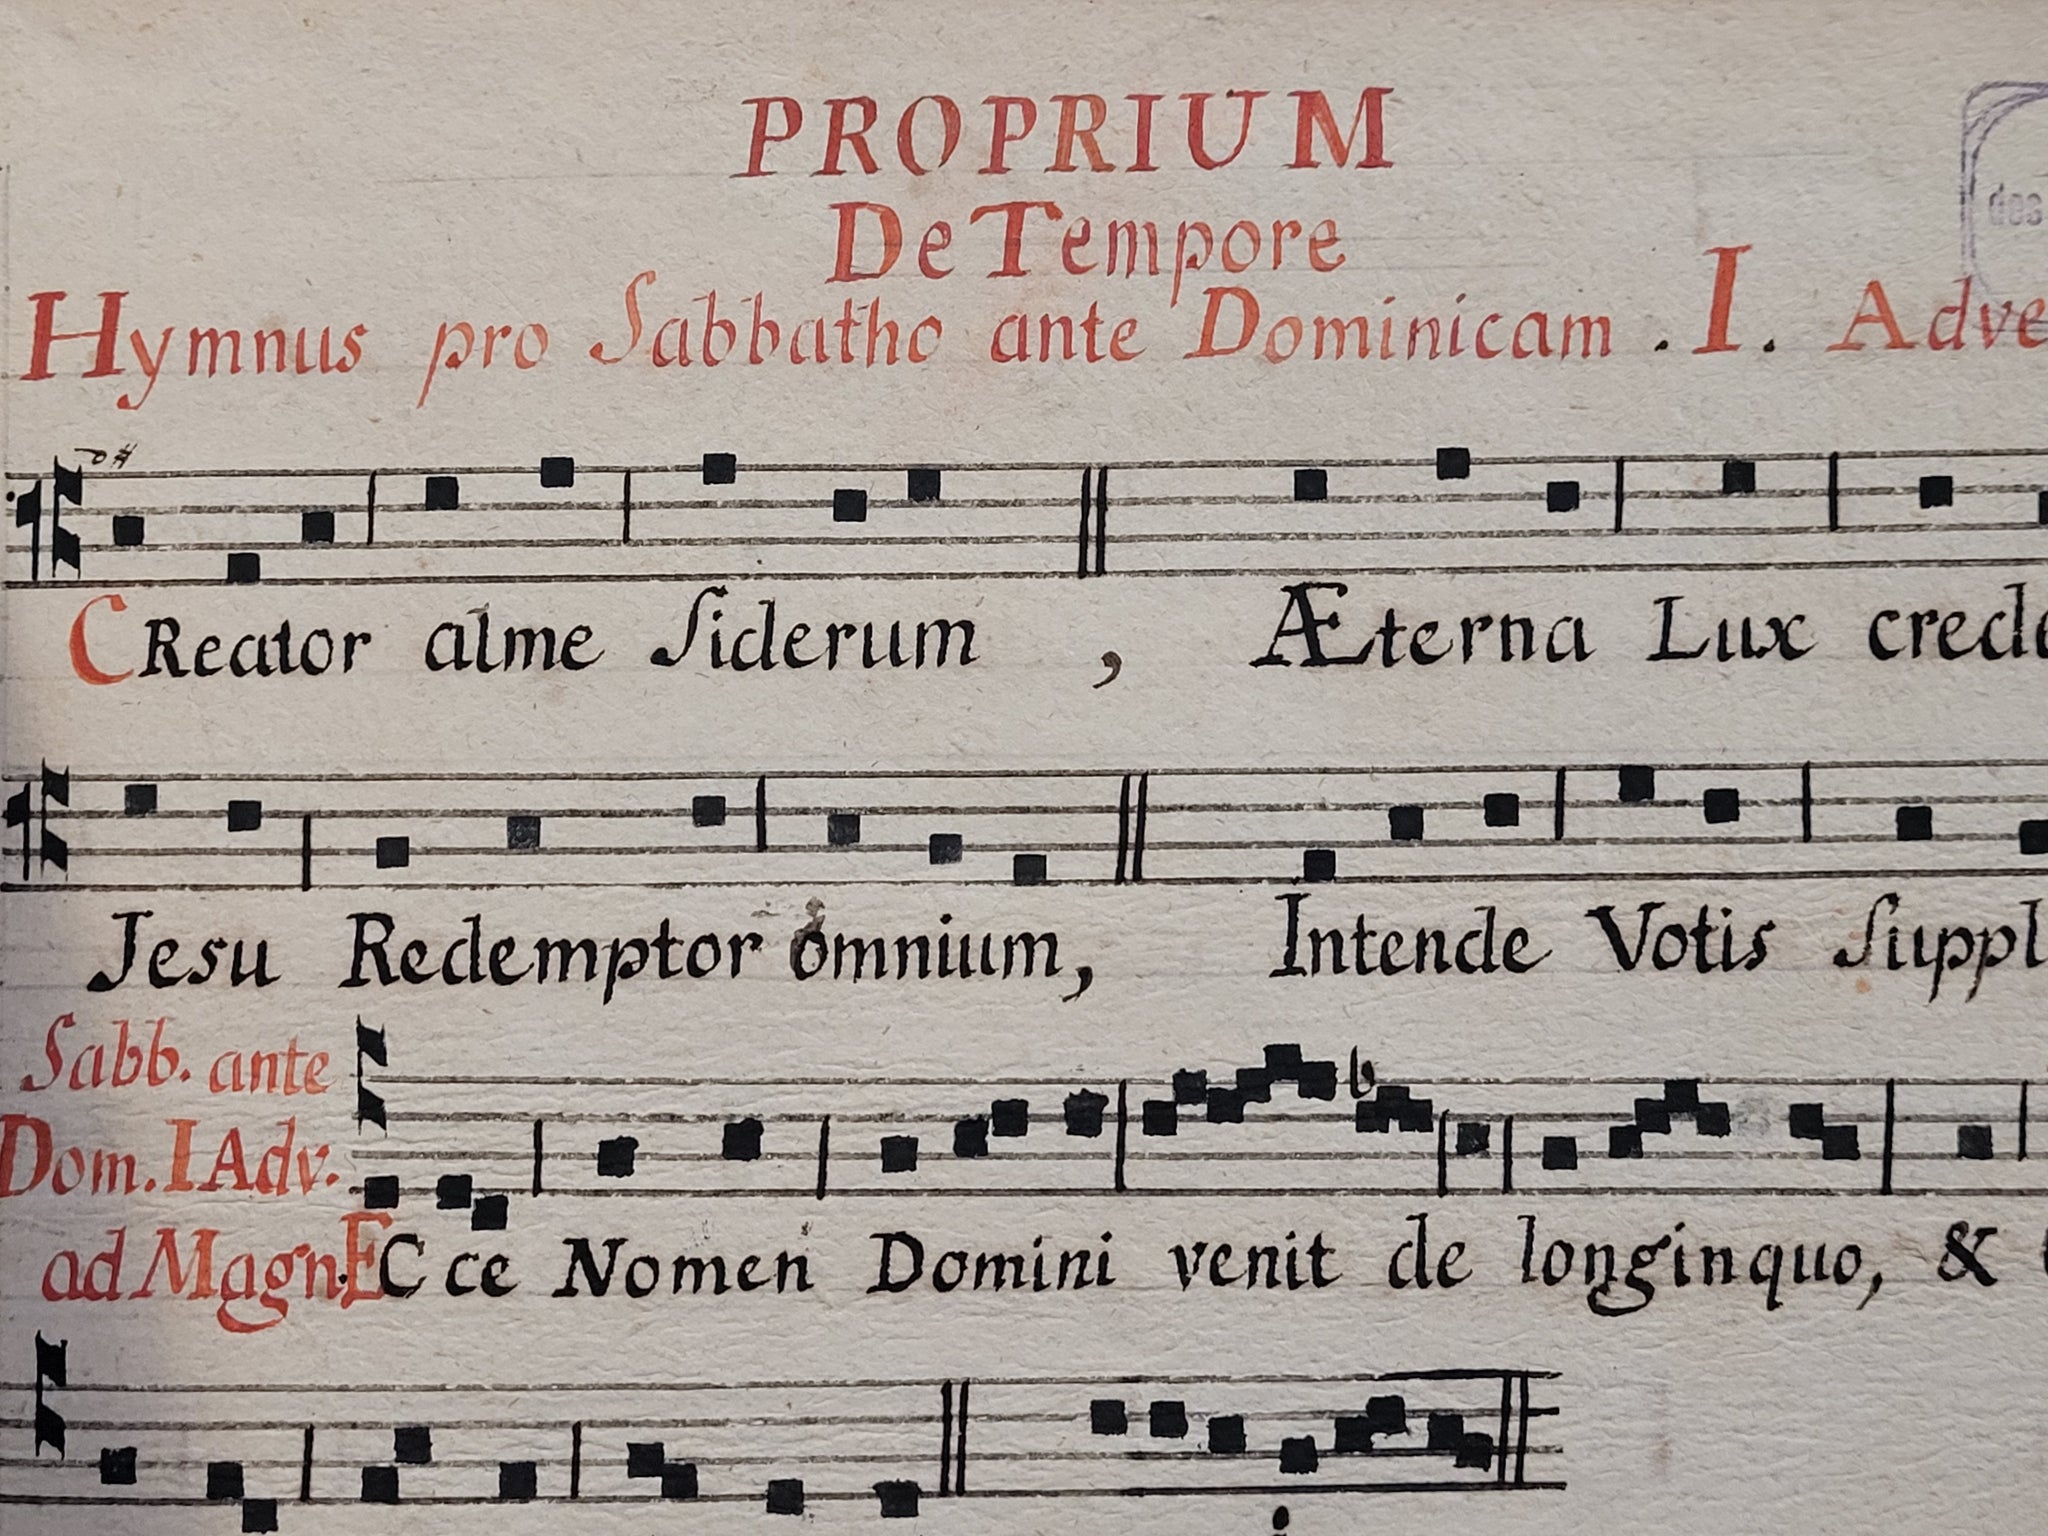 PROPRIUM
De Tempore
Hymnus pro Sabbatho ante Dominicam . I. Adve
des
CReator alme Siderum , Æterna Lux crede
Jesu Redemptor omnium, Intende Votis Suppl
Sabb. ante
Dom. I Adv.
ad Magn. ECce Nomen Domini venit de longinquo, &